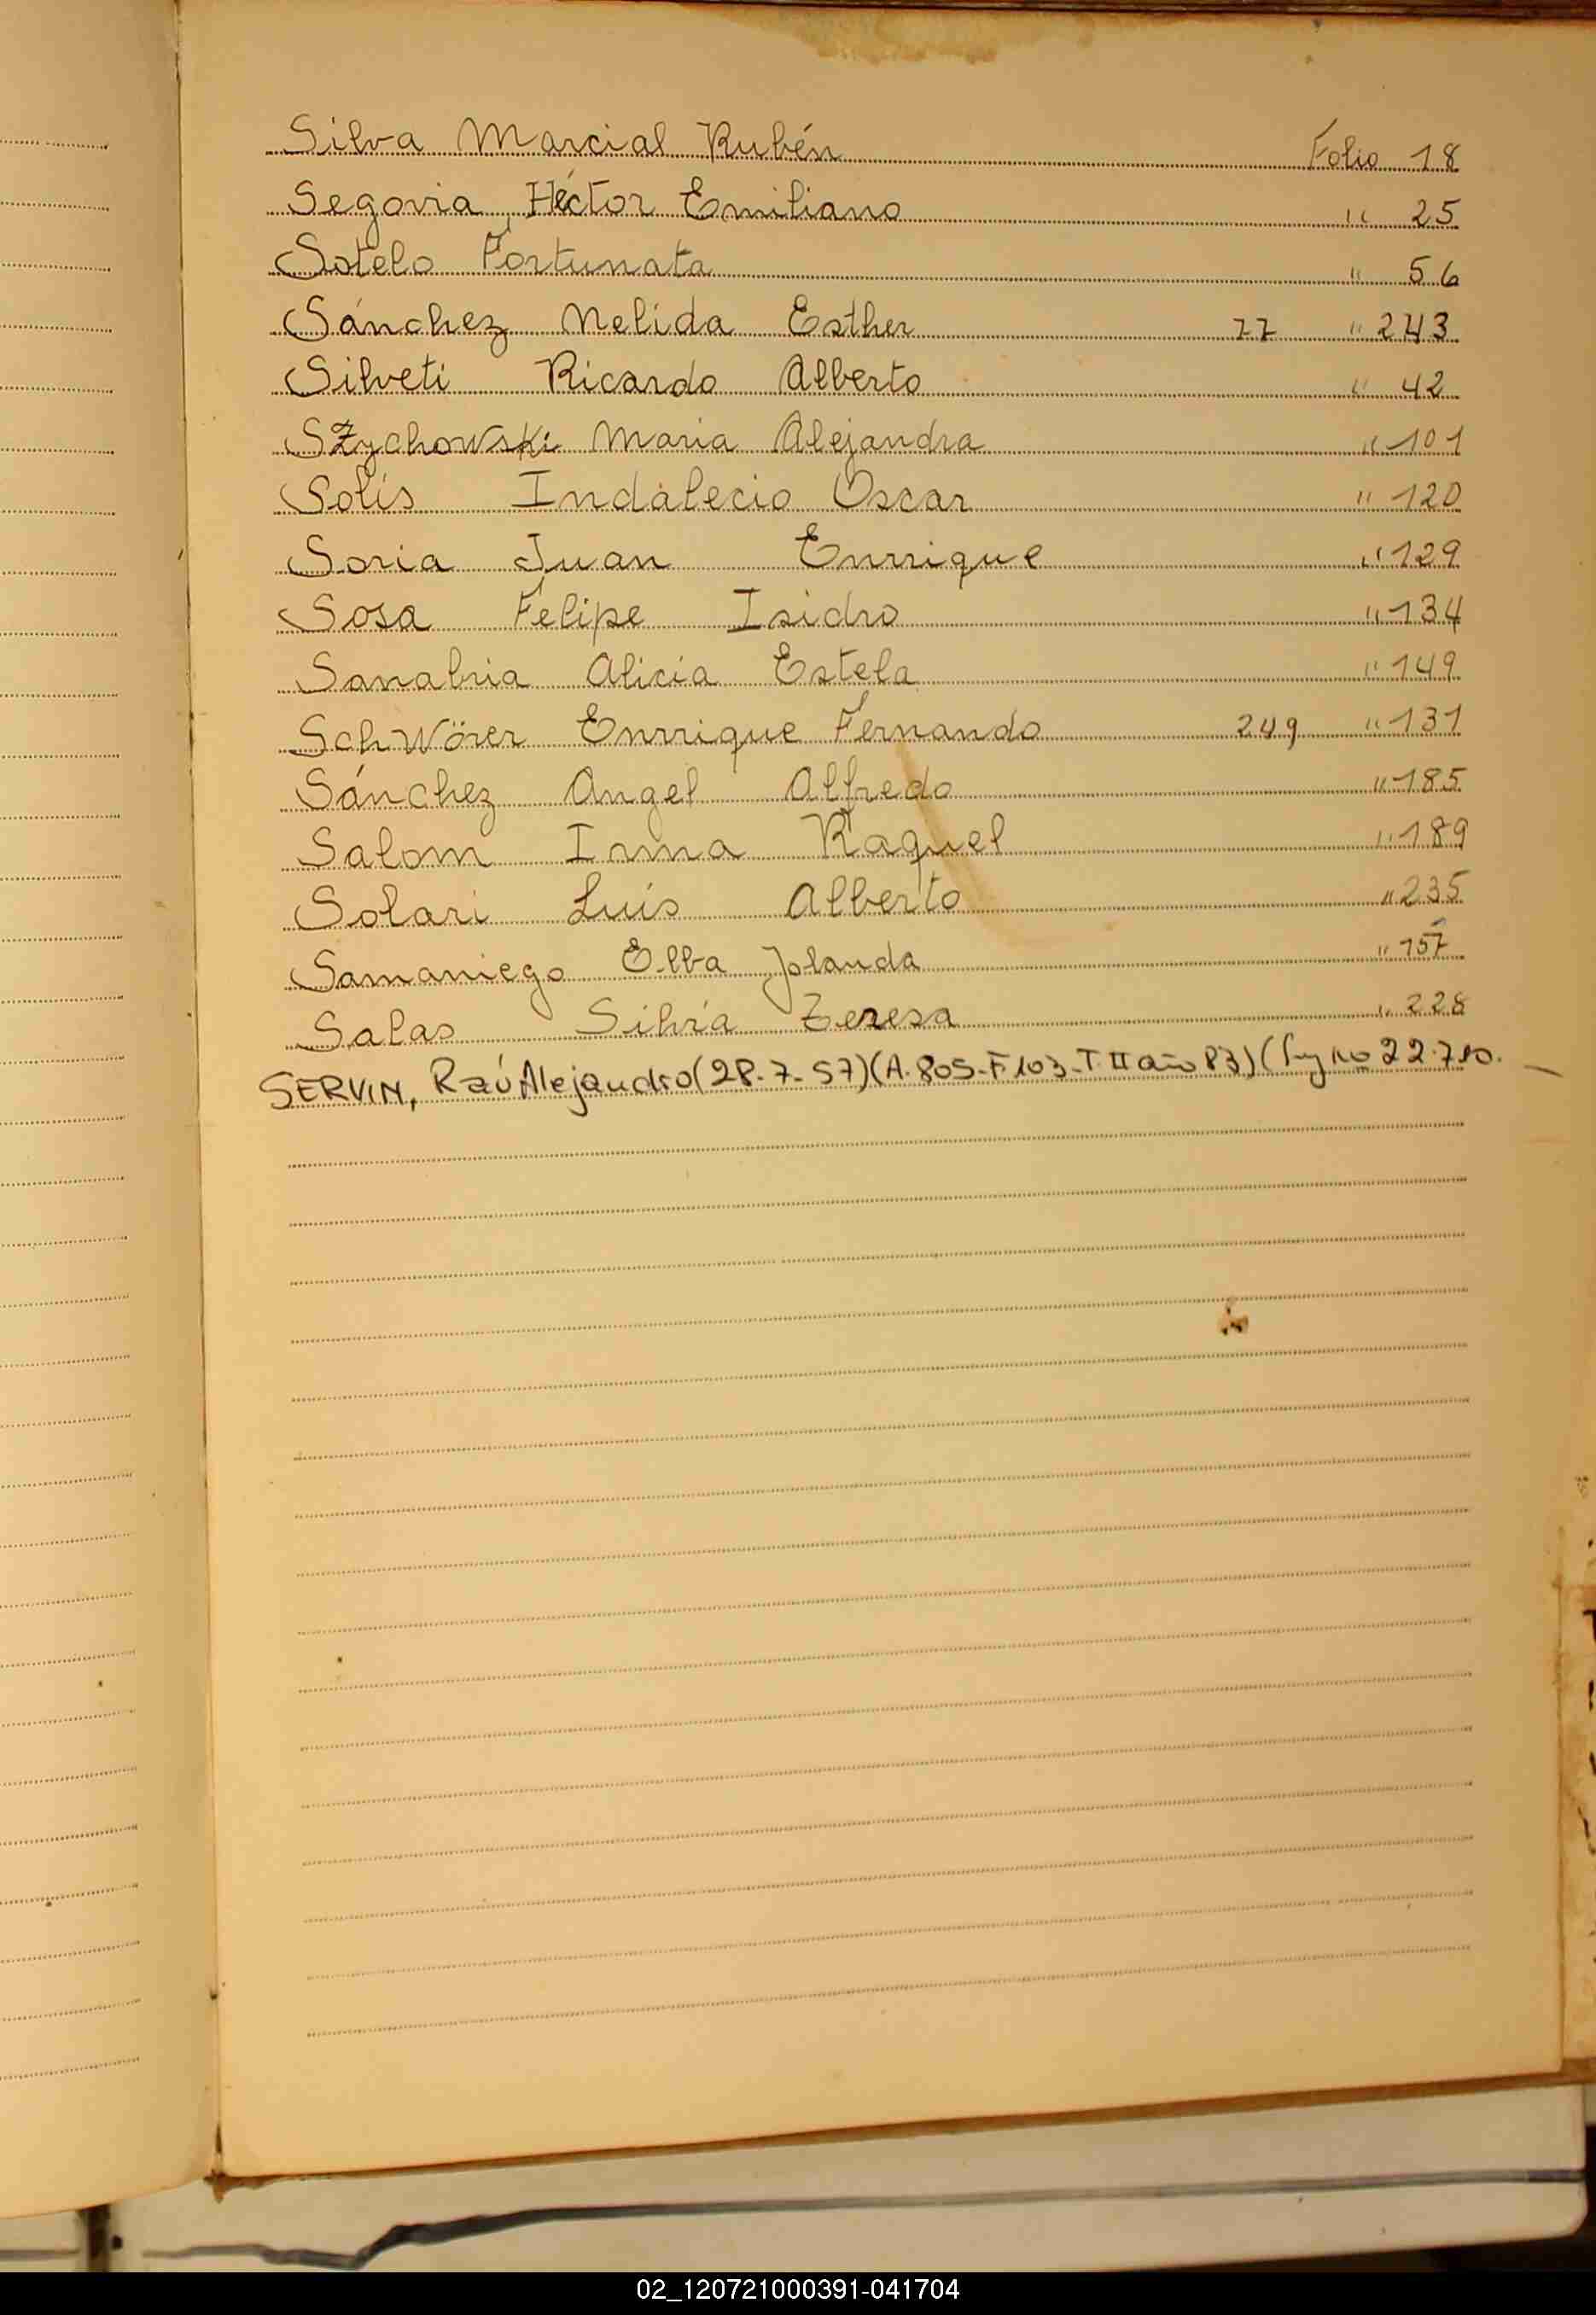 Silva Marcial Rubén Folio 18
Segovia, Héctor Emiliano " 25
Sotelo Fortunata " 56
Sánchez Nelida Esther 77 " 243
Silveti Ricardo Alberto " 42
SZychowski Maria Alejandra " 101
Solís Indalecio Oscar " 120
Soria Juan Enrrique " 129
Sosa Felipe Isidro " 134
Sanabria Alicia Estela " 149
SchWörer Enrrique Fernando 249 " 131
Sánchez Angel Alfredo " 185
Salom Irma Raquel " 189
Solari Luis Alberto " 235
Samaniego Elba Jolanda " 157
Salas Silvia Teresa " 228
SERVIN, Raú Alejandro (28-7-57) (A.805-F103-T.II año 83) ( 22.710.
02_120721000391-041704